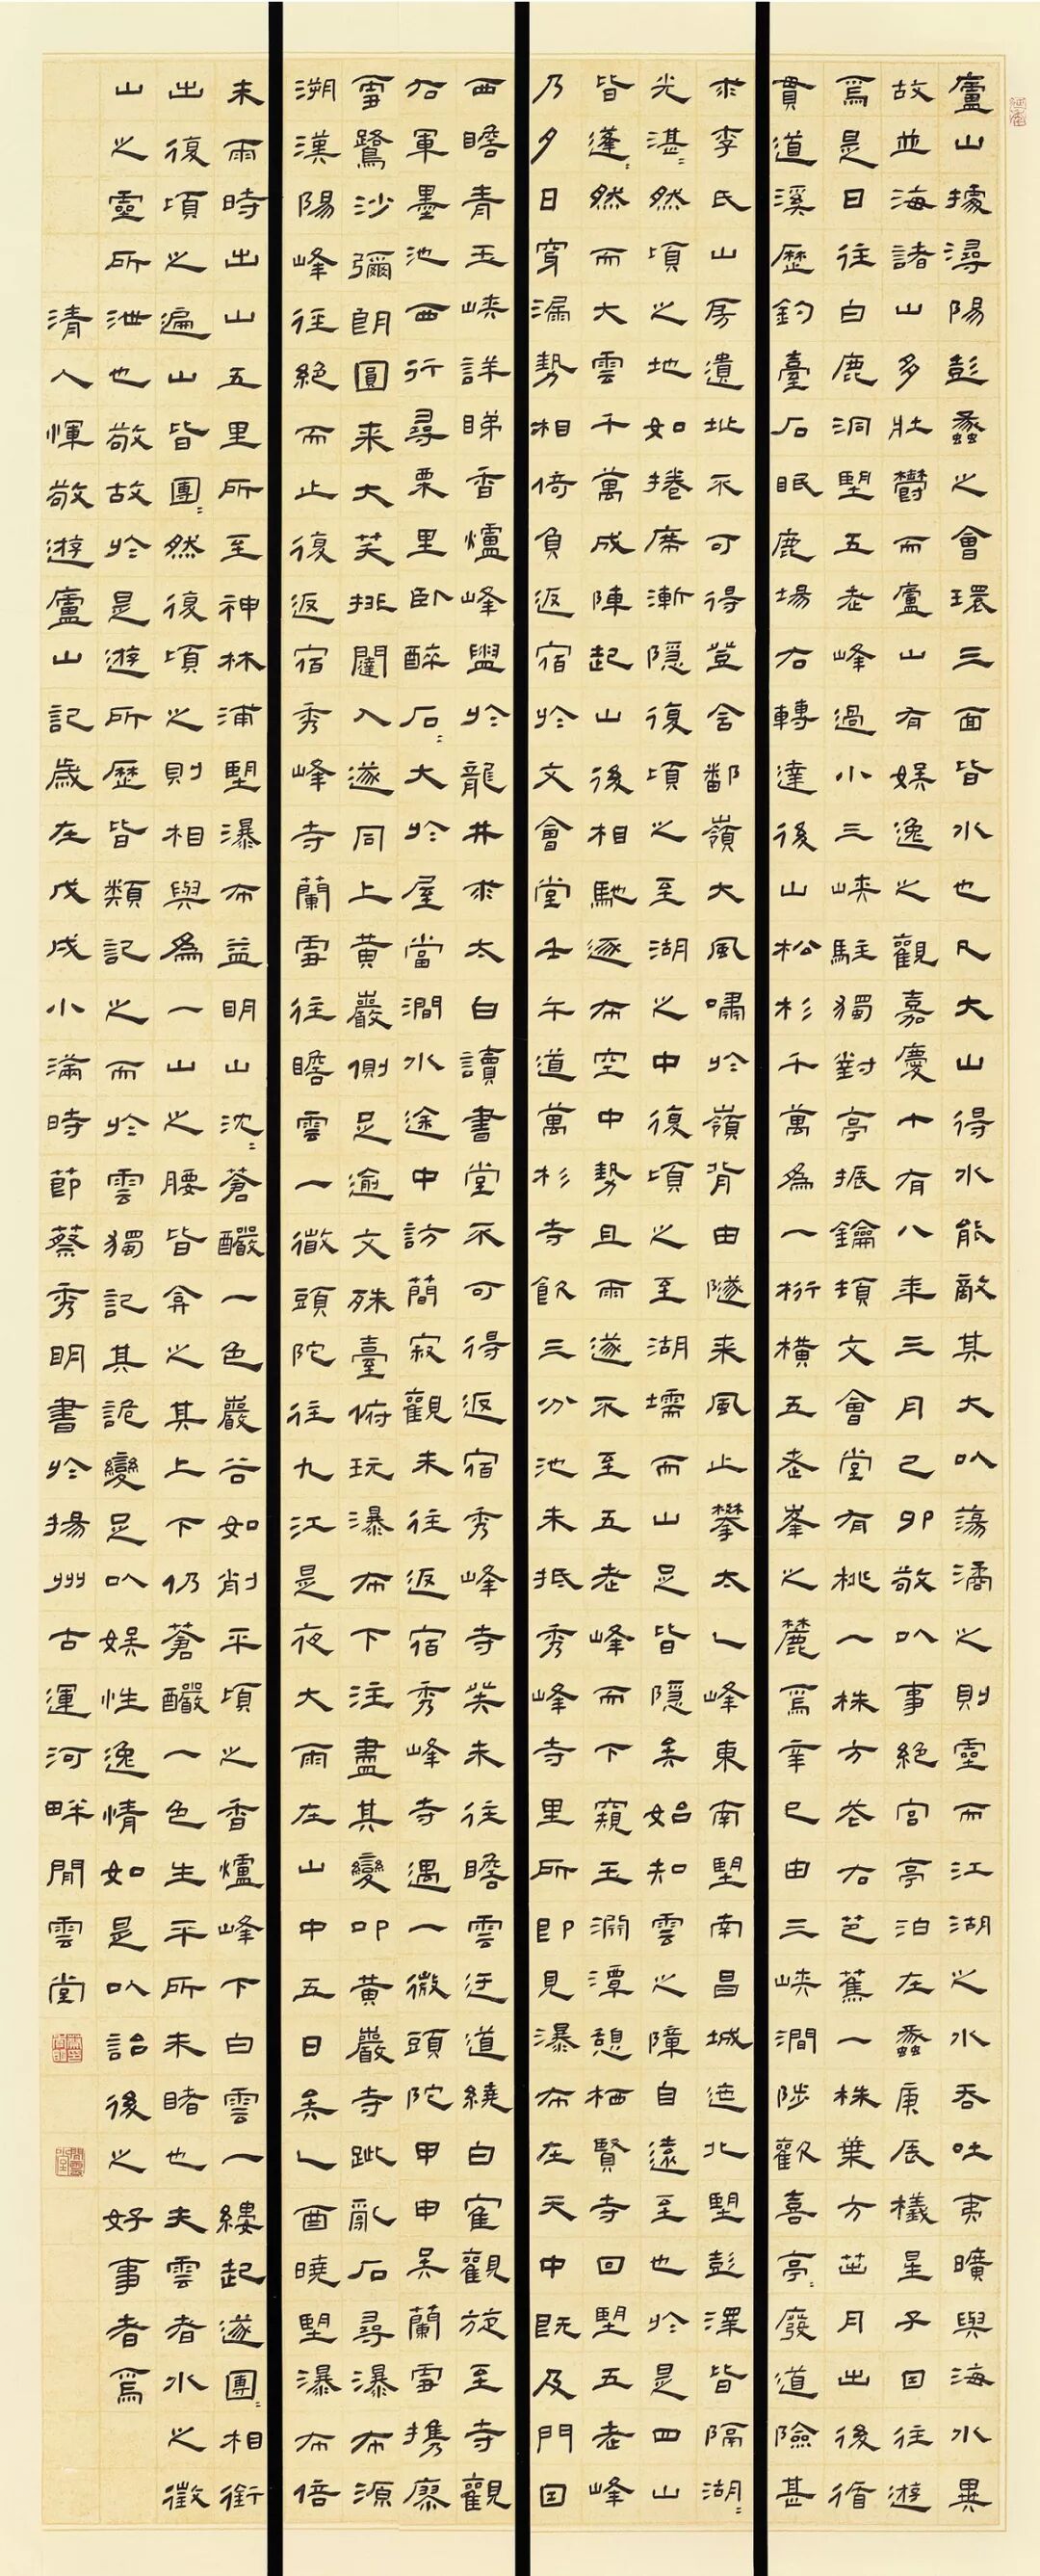 廬山據潯陽彭蠡之會環三面皆水也凡大山得水能敵其大以蕩潏之則靈而江湖之水吞吐夷曠與海水異
故並海諸山多壯鬱而廬山有娛逸之觀嘉慶十有八年三月己卯敬以事絕宮亭泊左蠡庚辰檥星子因往遊
焉是日往白鹿洞望五老峰過小三峽駐獨對亭振鑰頓文會堂有桃一株方花右芭蕉一株葉方茁月出後循
貫道溪歷釣臺石眠鹿場右轉達後山松杉千萬為一桁橫五老峯之麓焉辛巳由三峽澗陟歡喜亭〻廢道險甚
求李氏山房遺址不可得登含鄱嶺大風嘯於嶺背由隧來風止攀太乙峰東南望南昌城迤北望彭澤皆隔湖〻
光湛〻然頃之地如捲席漸隱復頃之至湖之中復頃之至湖壖而山足皆隱矣始知雲之障自遠至也於是四山
皆蓬〻然而大雲千萬成陣起山後相馳逐布空中勢且雨遂不至五老峰而下窺玉淵潭憩栖賢寺回望五老峰
乃夕日穿漏勢相倚負返宿於文會堂壬午道萬杉寺飲三分池未抵秀峰寺里所即見瀑布在天中既及門因
西瞻青玉峽詳睇香爐峰盥於龍井求太白讀書堂不可得返宿秀峰寺癸未往瞻雲迂道繞白隺觀旋至寺觀
右軍墨池西行尋栗里臥醉石〻大於屋當澗水途中訪簡寂觀未往返宿秀峰寺遇一微頭陀甲申吳蘭雪攜廖
雪鷺沙彌朗圓來大笑排闥入遂同上黃巖側足逾文殊臺俯玩瀑布下注盡其變叩黃巖寺跐亂石尋瀑布源
溯漢陽峰徑絕而止復返宿秀峰寺蘭雪往瞻雲一微頭陀往九江是夜大雨在山中五日矣乙酉曉望瀑布倍
未雨時出山五里所至神林浦望瀑布益明山沈〻蒼釅一色巖谷如削平頃之香爐峰下白雲一縷起遂團〻相銜
出復頃之遍山皆團〻然復頃之則相與為一山之腰皆弇之其上下仍蒼釅一色生平所未睹也夫雲者水之徵
山之靈所泄也敬故於是遊所歷皆類記之而於雲獨記其詭變足以娛性逸情如是以詒後之好事者焉
清人惲敬遊廬山記歲在戊戌小滿時節蔡秀明書於揚州古運河畔閒雲堂